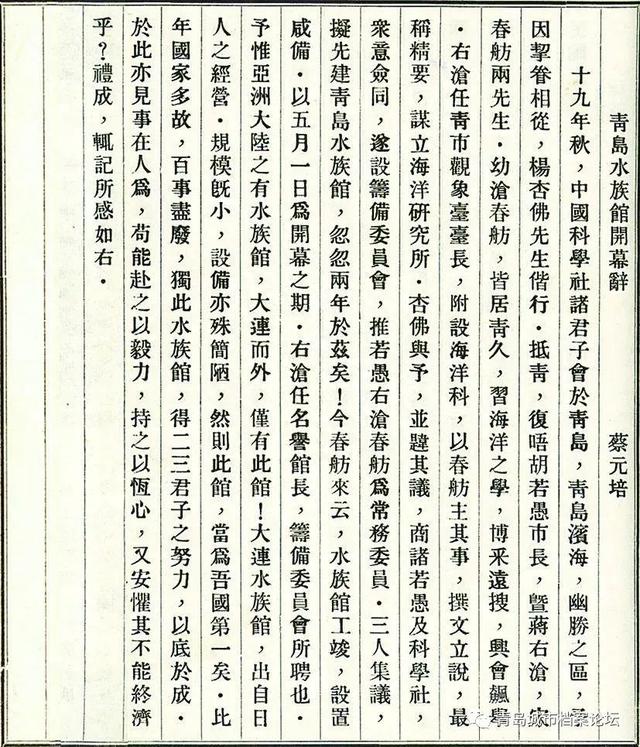 青島水族館開幕辭　蔡元培
十九年秋，中國科學社諸君子會於青島，青島濱海，幽勝之區，
因挈眷相從，楊杏佛先生偕行．抵青，復唔胡若愚市長，曁蔣右滄，宋
春舫兩先生．幼滄春舫，皆居青久，習海洋之學，博釆遠搜，興會飆舉
．右滄任青市觀象臺臺長，附設海洋科，以春舫主其事，撰文立說，最
稱精要，謀立海洋研究所．杏佛與予，並韙其議，商諸若愚及科學社，
衆意僉同，遂設籌備委員會，推若愚右滄春舫爲常務委員．三人集議，
擬先建青島水族館，忽忽兩年於茲矣！今春舫來云，水族館工竣，設置
咸備．以五月一日爲開幕之期．右滄任名譽館長，籌備委員會所聘也．
予惟亞洲大陸之有水族館，大連而外，僅有此館！大連水族館，出自日
人之經營．規模旣小，設備亦殊簡陋，然則此館，當爲吾國第一矣．比
年國家多故，百事盡廢，獨此水族館，得二三君子之努力，以底於成．
於此亦見事在人爲，苟能赴之以毅力，持之以恆心，又安懼其不能終濟
乎？禮成，輒記所感如右．
青岛城市档案论坛